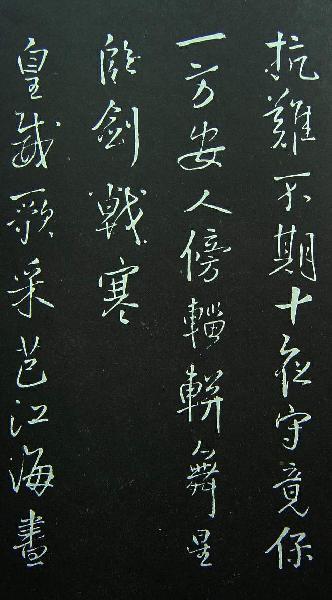 抗難不期十守竟保
一方安人傍輜軿舞星
臨劍戟寒
皇哉歌采芑江海